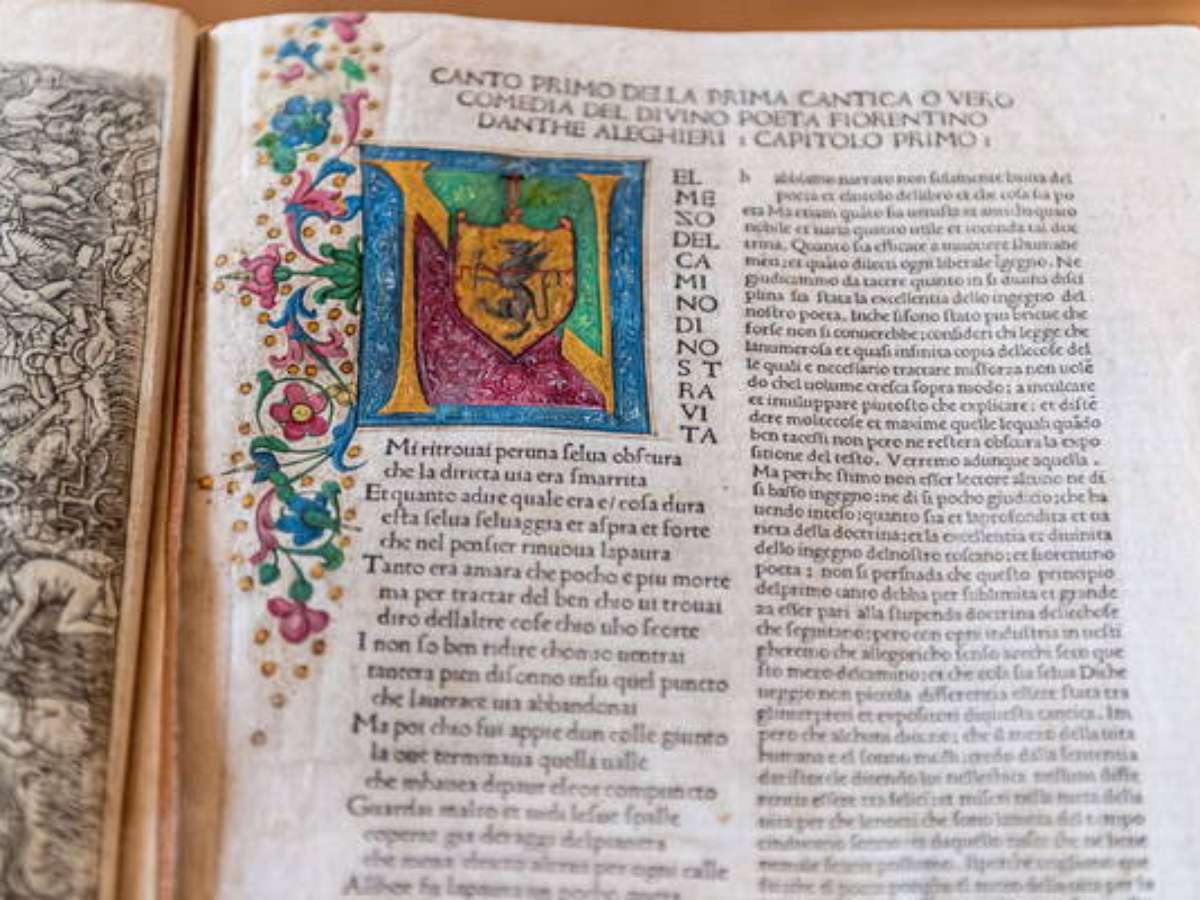 CANTO PRIMO DELLA PRIMA CANTICA O VERO
COMEDIA DEL DIVINO POETA FIORENTINO
DANTHE ALEGHIERI : CAPITOLO PRIMO :
N
EL
ME
ZO
DEL
CA
MI
NO
DI
NO
S T
RA
VI
TA
Mi ritrouai per una ſelua obſcura
che la diricta uia era ſmarrita
Et quanto adire quale era e/ coſa dura
eſta ſelua ſeluaggia et aſpra et forte
che nel penſier rinuoua lapaura
Tanto era amara che pocho e piu morte
ma per tractar del ben chio ui trouai
diro dellaltre coſe chio uho ſcorte
I non ſo ben ridire chomio uentrai
tantera pien diſonno inſu quel puncto
che lauerace uia abbandonai
Ma poi chio fui appie dun colle giunto
la oue terminaua quella ualle
che mhauea depaur elcor compuncto
Guardai
coperte gia deraggi delpianeta
che mena per ogni calle
Allhor fu lapaura un pocho
h abbiamo narrato non ſolamente lauita del
poeta et eltitolo dellibro et che coſa ſia po
eta Ma etiam quāto ſia uetuſta et anticha quāto
nobile et uaria quanto utile et ioconda tal doc
trina. Quanto ſia efficace a muouere lhumane
menti: et quāto dilecti ogni liberale īgegno. Ne
giudicammo da tacere quanto in ſi diuina diſci
plina ſia ſtata la excellentia dello ingegno del
noſtro poeta. Inche ſiſono ſtato piu brieue che
forſe non ſi conuerebbe: conſideri chi legge che
lanumeroſa et quaſi infinita copia dellecoſe del
le quali e neceſſario tractare miſforza non uolē
do chel uolume creſca ſopra modo: a inculcare
et inuiluppare piutoſto che explicare: et diſtē
dere moltecoſe et maxime quelle lequali quādo
ben taceſſi non pero ne reſtera obſcura la expo
ſitione del teſto. Verremo adunque aquella .
Ma perche ſtimo non eſſer lectore alcuno ne di
ſi baſſo ingegno: ne di ſi pocho giudicio: che ha
uendo inteſo: quanto ſia et laprofondita et ua
rieta della doctrina: et la excellentia et diuinita
dello ingegno delnoſtro toſcano: et fiorentino
poeta : non ſi perſuada che queſto principio
delprimo canto debba per ſublimita et grande
za eſſer pari alla ſtupenda doctrina dellechoſe
che ſeguitano: pero con ogni induſtria inueſti
gheremo che allegoricho ſenſo arechi ſeco que
ſto mezo delcamino: et che coſa ſia ſelua Diche
ueggio non piccola differentia eſſere ſtata tra
glinterpreti et expoſitori diqueſta cantica. Im
pero che alchuni dicono: che il mezo della uita
humana e el ſonno